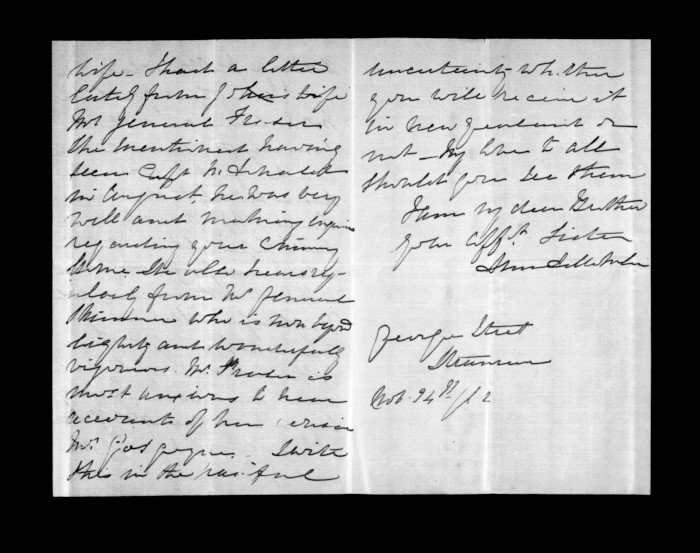 wife - I had a letter
lately from John's wife
Mrs General Fraser
She mentioned having
seen Capt
in August. he was very
well and making inquiries
regarding your coming
home. She also hears reg-
ularly from Mrs General
Skinner who is now beyond
eighty and wonderfully
vigorous. Mrs Fraser is
most anxious to hear
accounts of her cousin
Mrs I write
this in the painful
uncertainty whether
you will receive it
in New Zealand or
not - My love to all
should you see them
I am my dear Brother
your affte Sister
George Street
Novr 24th /62